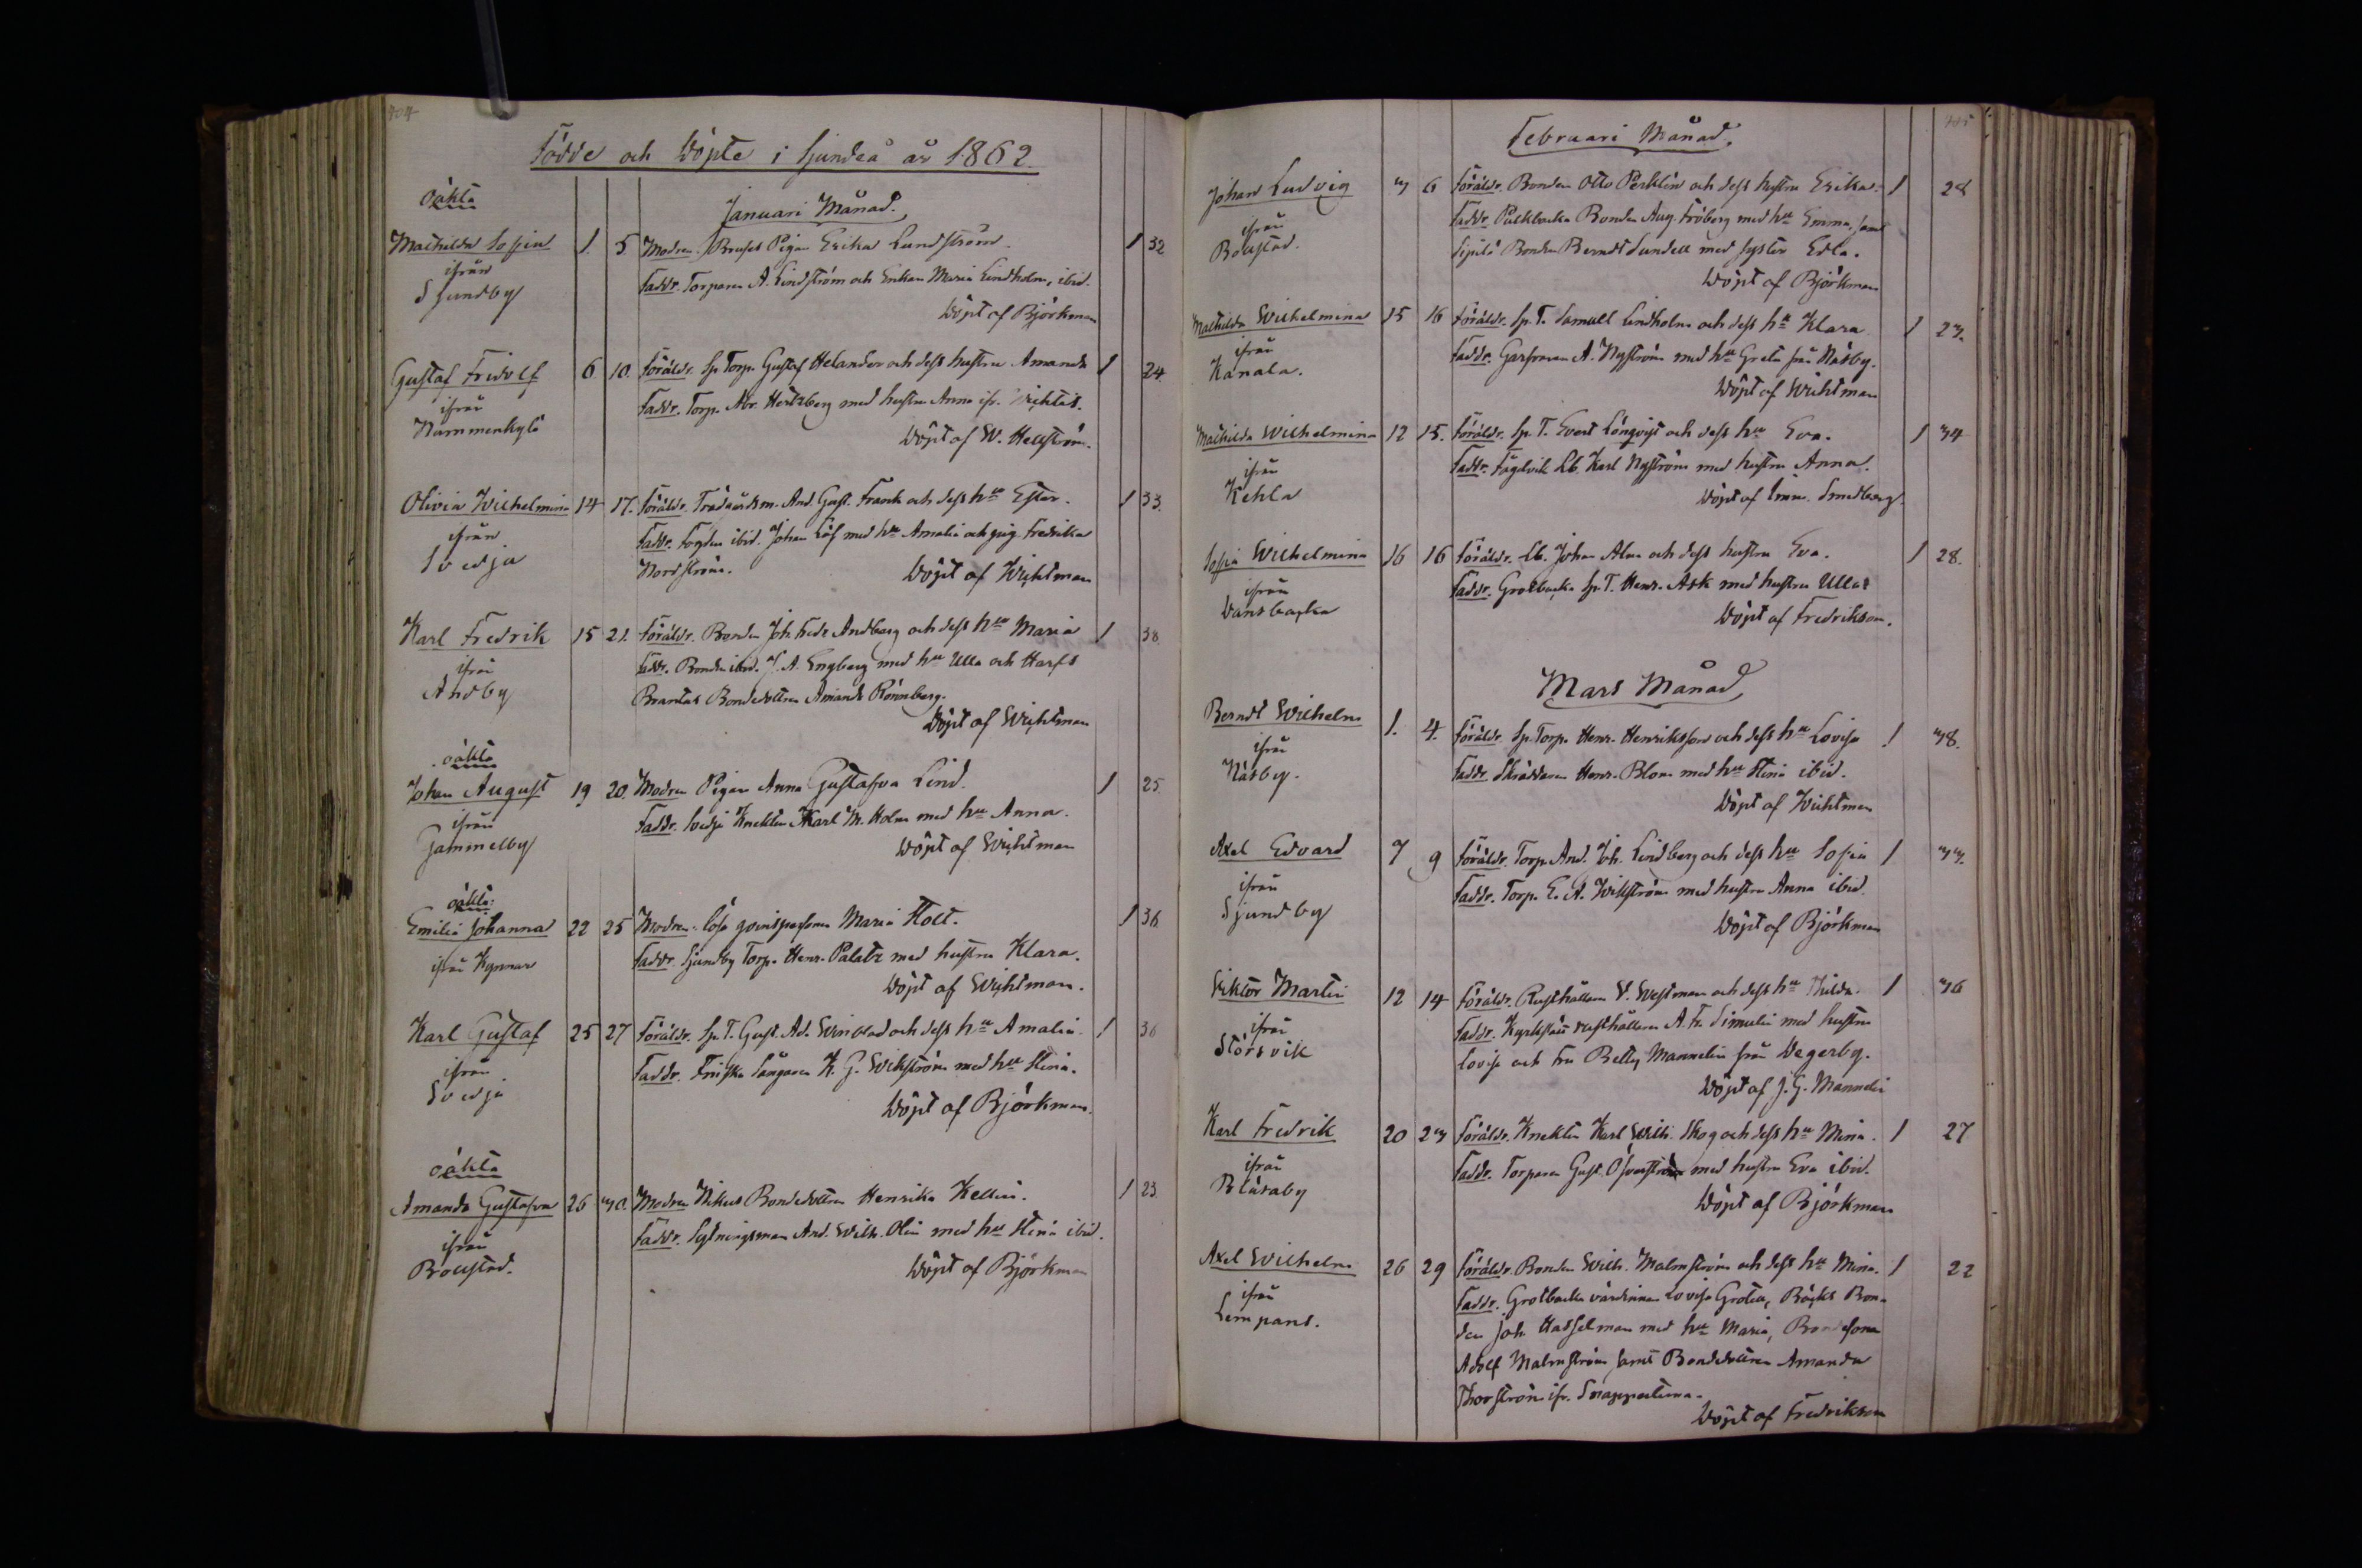 404
Födde och Döpte i Sjundeå år 1862.
Januari Månad.
oäkta
Mathilda Sofia 1. 5 Modren. Bruks Pigan Erika Lundström. 1 32
ifrån
Sjundby
Faddr. Torparen A. Lindström och Enkan Maria Lindholm, ibid.
Döpt af Björkman
Gustaf Fridolf 6 10. Föräldr. Sp. Torp. Gustaf Helander och dess hustru Amanda 1 24.
ifrån
Nummenkylä
Faddr. Torp. Abr. Hertzberg med hustru Anna ifr.
Döpt af W. Hellström.
Olivia Wilhelmina 14 17. Föräldr. Trädgårdsm. And. Gust. Frank och dess hu Ester. 1 33.
ifrån
Svedja
Faddr. Fogden ibid. Johan Löf med hu Amalia och pig. Fredrika
Nordström. Döpt af Wichtman
Karl Fredrik 15 21. Föräldr. Bonden Joh. Fredr. Andberg och dess hu Maria 1 38.
ifrån
Andby
Faddr. Bonden ibid. J. A. Engberg med hu Ulla och Harfs
Brantas Bondedottren Amanda Rönnberg.
Döpt af Wichtman
oäkta
Johan August 19 20. Modren Pigan Anna Gustafva Lind. 1 25.
ifrån
Gammelby
Faddr. Svedja Knekten Karl M. Holm med hu Anna.
Döpt af Wichtman
oäkta
Emilia Johanna 22 25 Modren. Lösa qvinspersonen Maria Holt. 1 36
ifrån Kynnar
Faddr. Sjundby Torp. Henr. Palatz med hustru Klara.
Döpt af Wichtman.
Karl Gustaf 25 27 Föräldr. Sp. T. Gust. Ad. Winblad och dess hu Amalia 1 36
ifrån
Svedja
Faddr. Friska Sångaren K. G. Wikström med hu Stina.
Döpt af Björkman.
oäkta
Amanda Gustafva 26 30. Modren Nikus Bondedottren Henrika Kellin. 1 23.
ifrån
Bollstad.
Faddr. Sytningsman And. Wilh. Olin med hu Stina ibid.
Döpt af Björkman
405
Februari Månad.
Johan Ludvig 3 6 Föräldr. Bonden Otto Perklén och dess hustru Erika. 1 28
ifrån
Bollstad.
Faddr. Pulkbacka Bonden Aug. Fröberg med hu Emma, samt
Sipilä Bonden Berndt Sundell med syster Edla.
Döpt af Björkman
Mathilda Wilhelmina 15 16 Föräldr. Sp. T. Samuel Lindholm och dess hu Klara 1 23.
ifrån
Kanala.
Faddr. Garfvaren A. Nyström med hu Greta från Näsby.
Döpt af Wichtman
Mathilda Wilhelmina 12 15. Föräldr. Sp. T. Evert Löngqvist och dess hu Eva. 1 34
ifrån
Kehla
Faddr. Fagelvik Lb. Karl Nyström med hustru Anna.
Döpt af Imm. Smedberg.
Sofia Wilhelmina 16 16 Föräldr. Lb. Johan Alm och dess hustru Eva. 1 28.
ifrån
Dansbacka
Faddr. Grotbacka Sp. T. Henr. Ask med hustru Ulla
Döpt af Fredrikson.
Mars Månad
Berndt Wilhelm 1. 4. Föräldr. Sp. Torp. Henr. Henriksson och dess hu Lovisa 1 38.
ifrån
Näsby.
Faddr. Skräddaren Henr. Blom med hu Stina ibid.
Döpt af Wichtman
Axel Edvard 7 9 Föräldr. Torp. And. Joh. Lindberg och dess hu Sofia 1 33.
ifrån
Sjundby
Faddr. Torp. E. A. Wikström med hustru Anna ibid.
Döpt af Björkman
Viktor Martin 12 14 Föräldr. Rusthållaren V. Westman och dess hu Thilda. 1 36
ifrån
Störsvik
Faddr. Kyrkslätt rusthållaren A. Fr. Simolin med hustru
Lovisa och Fru Betty Mannelin från Degerby.
Döpt af J. G. Mannelin
Karl Fredrik 20 23 Föräldr. Knekten Karl Wilh. Skog och dess hu Mina. 1 27
ifrån
Bläsaby
Faddr. Torparen Gust. Öfverström med hustru Eva ibid.
Döpt af Björkman
Axel Wilhelm 26 29 Föräldr. Bonden Wilh. Malmström och dess hu Mina. 1 22
ifrån
Lempans.
Faddr. Grotbacka värdinnan Lovisa Groten, Bäcks Bon-
den Joh. Hasselman med hu Maria, Bondesonen
Adolf Malmström samt Bondedottren Amanda
Thorström ifr. Snappertuna.
Döpt af Fredrikson